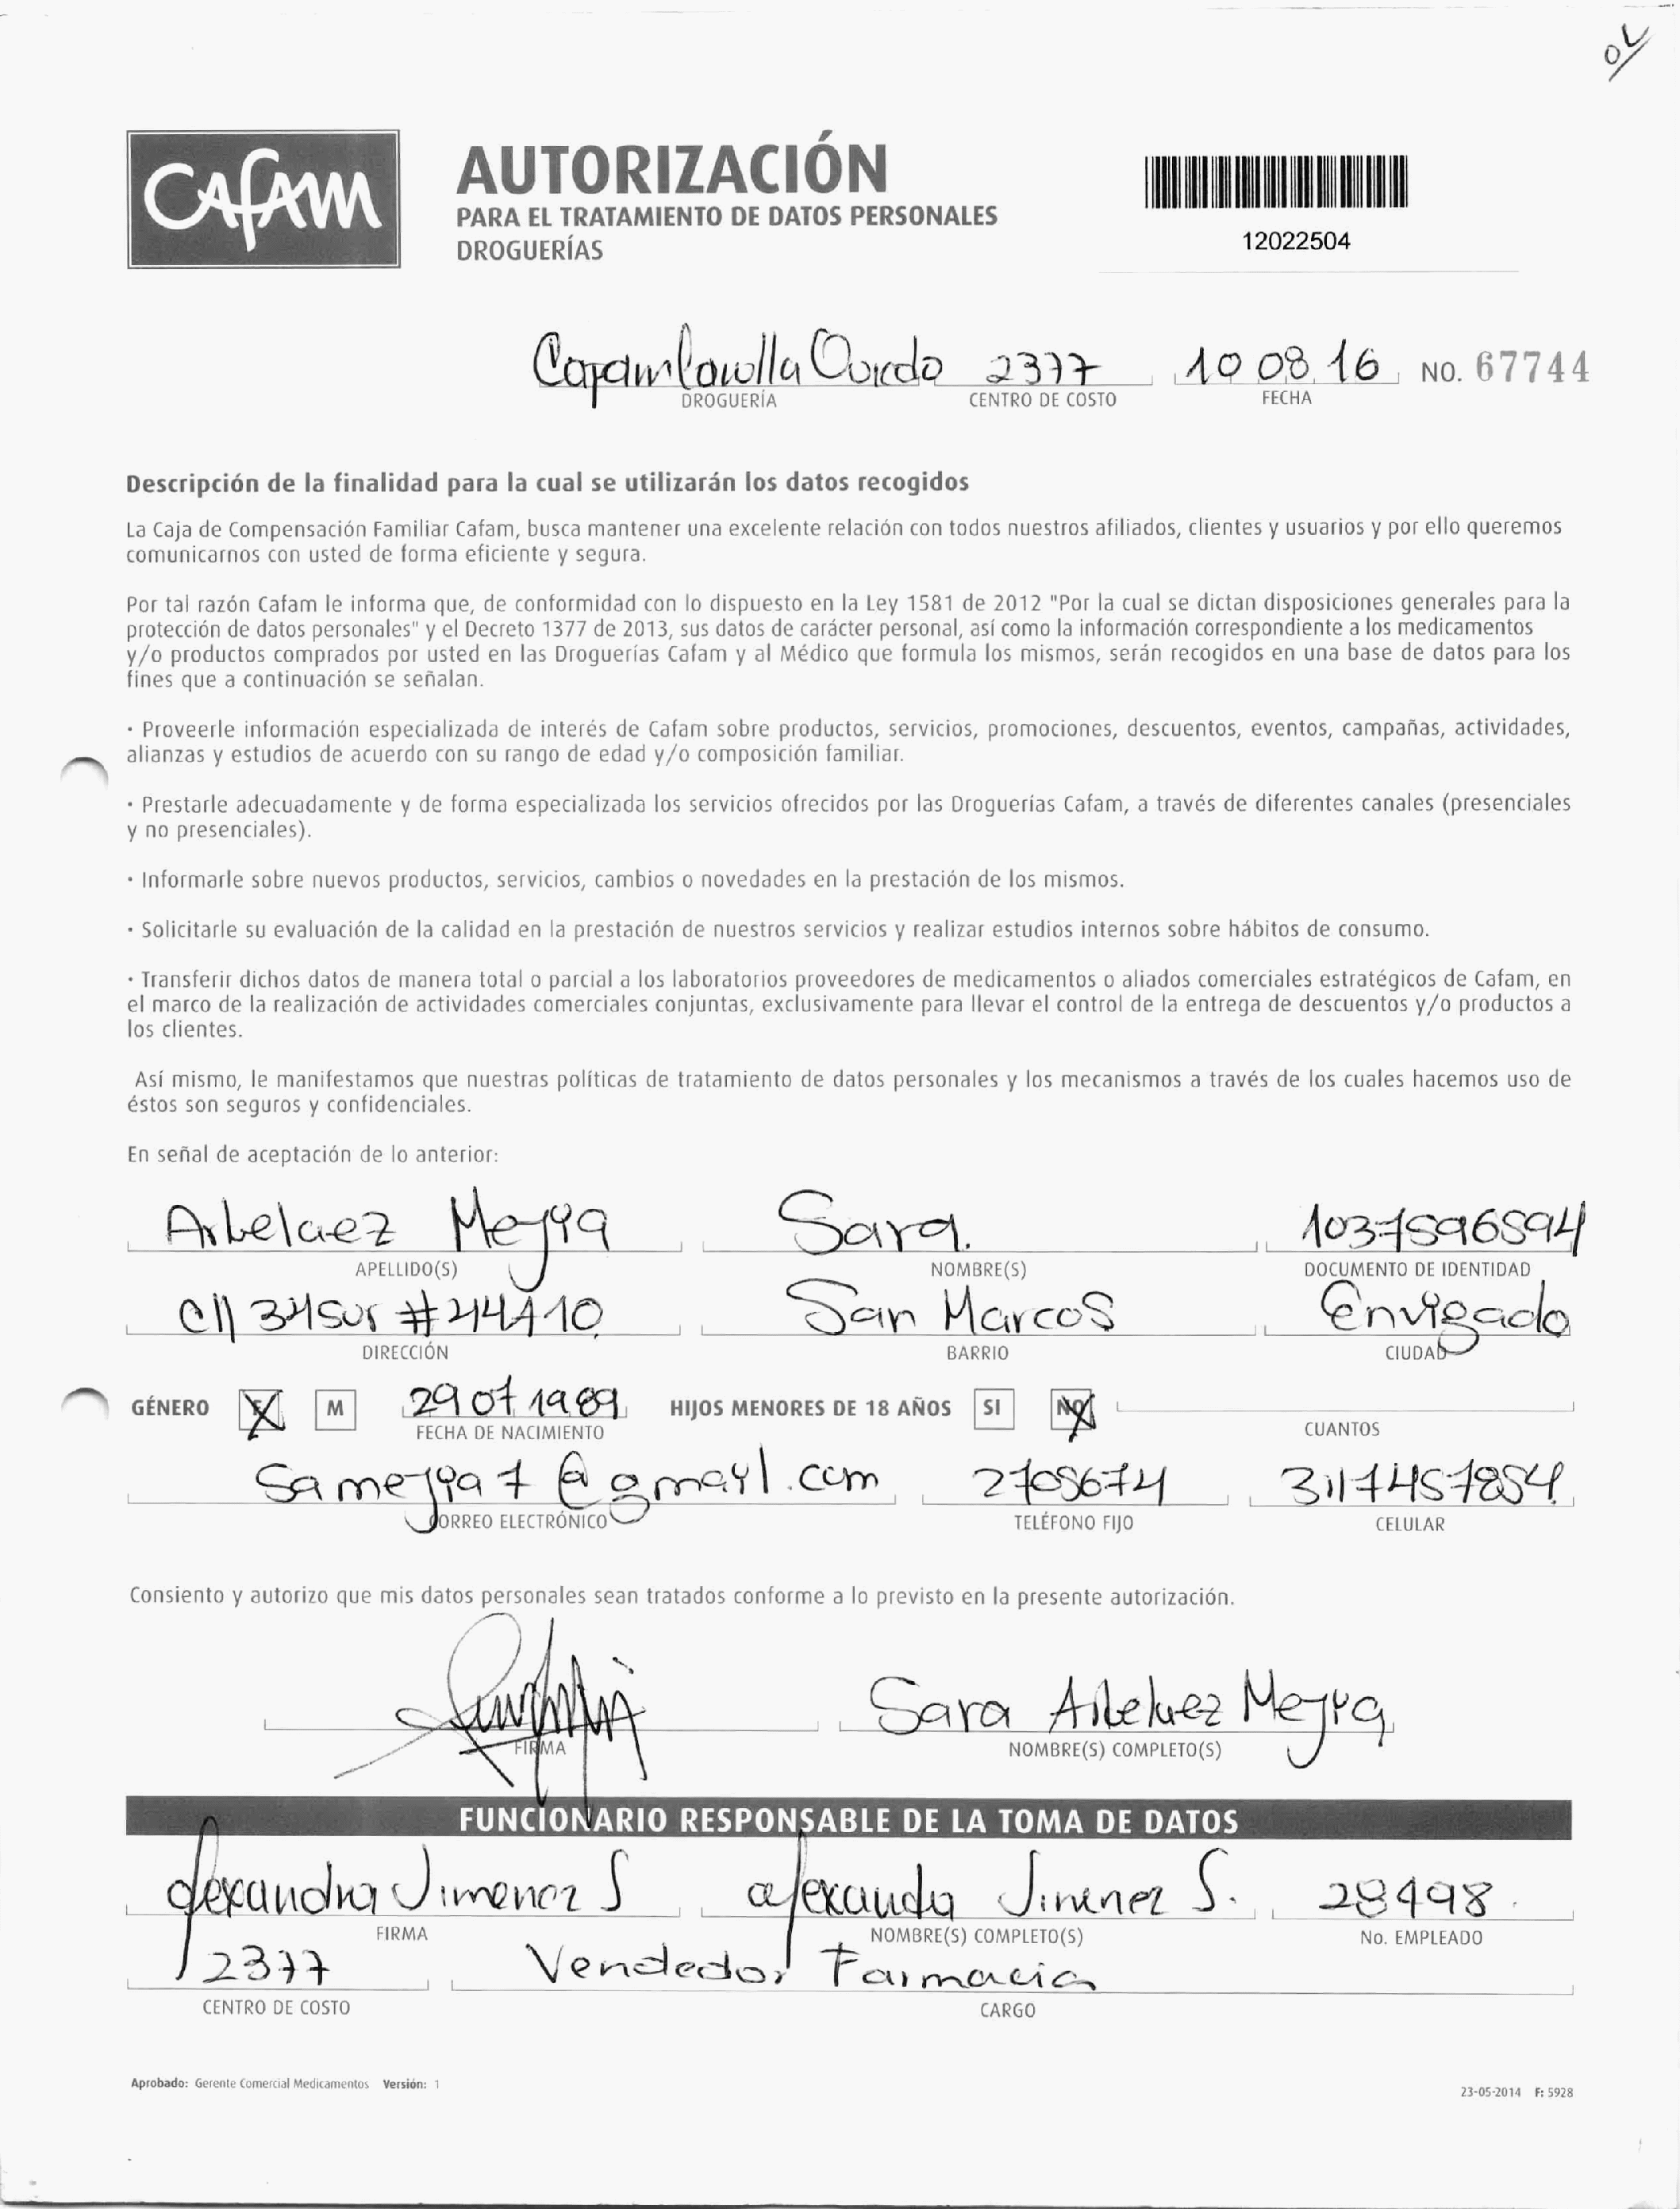 OK
CAFAM
AUTORIZACIÓN
PARA EL TRATAMIENTO DE DATOS PERSONALES
DROGUERÍAS
12022504
2377 10 08 16 NO. 67744
DROGUERÍA CENTRO DE COSTO FECHA
Descripción de la finalidad para la cual se utilizarán los datos recogidos
La Caja de Compensación Familiar Cafam, busca mantener una excelente relación con todos nuestros afiliados, clientes y usuarios y por ello queremos
comunicarnos con usted de forma eficiente y segura.
Por tal razón Cafam le informa que, de conformidad con lo dispuesto en la Ley 1581 de 2012 "Por la cual se dictan disposiciones generales para la
protección de datos personales" y el Decreto 1377 de 2013, sus datos de carácter personal, así como la información correspondiente a los medicamentos
y/o productos comprados por usted en las Droguerías Cafam y al Médico que formula los mismos, serán recogidos en una base de datos para los
fines que a continuación se señalan.
· Proveerle información especializada de interés de Cafam sobre productos, servicios, promociones, descuentos, eventos, campañas, actividades,
alianzas y estudios de acuerdo con su rango de edad y/o composición familiar.
· Prestarle adecuadamente y de forma especializada los servicios ofrecidos por las Droguerías Cafam, a través de diferentes canales (presenciales
y no presenciales).
· Informarle sobre nuevos productos, servicios, cambios o novedades en la prestación de los mismos.
· Solicitarle su evaluación de la calidad en la prestación de nuestros servicios y realizar estudios internos sobre hábitos de consumo.
· Transferir dichos datos de manera total o parcial a los laboratorios proveedores de medicamentos o aliados comerciales estratégicos de Cafam, en
el marco de la realización de actividades comerciales conjuntas, exclusivamente para llevar el control de la entrega de descuentos y/o productos a
los clientes.
Así mismo, le manifestamos que nuestras políticas de tratamiento de datos personales y los mecanismos a través de los cuales hacemos uso de
éstos son seguros y confidenciales.
En señal de aceptación de lo anterior:
Arbelaez Mejya Sara. 1037596594
APELLIDO(S) NOMBRE(S) DOCUMENTO DE IDENTIDAD
Cll 34sur #44A10 San Marcos Envigado
DIRECCIÓN BARRIO CIUDAD
GÉNERO F M 29 07 1989 HIJOS MENORES DE 18 AÑOS SI NO
FECHA DE NACIMIENTO CUANTOS
Samejya7@gmayl.com 2705674 3117457854
CORREO ELECTRÓNICO TELÉFONO FIJO CELULAR
Consiento y autorizo que mis datos personales sean tratados conforme a lo previsto en la presente autorización.
Sara Arbelaez Mejya
FIRMA NOMBRE(S) COMPLETO(S)
FUNCIONARIO RESPONSABLE DE LA TOMA DE DATOS
alexandra Jimenez S alexandra Jimenez S. 28498.
FIRMA NOMBRE(S) COMPLETO(S) No. EMPLEADO
2377 Vendedor Farmacia
CENTRO DE COSTO CARGO
Aprobado: Gerente Comercial Medicamentos Versión: 1
23-05-2014 F: 5928